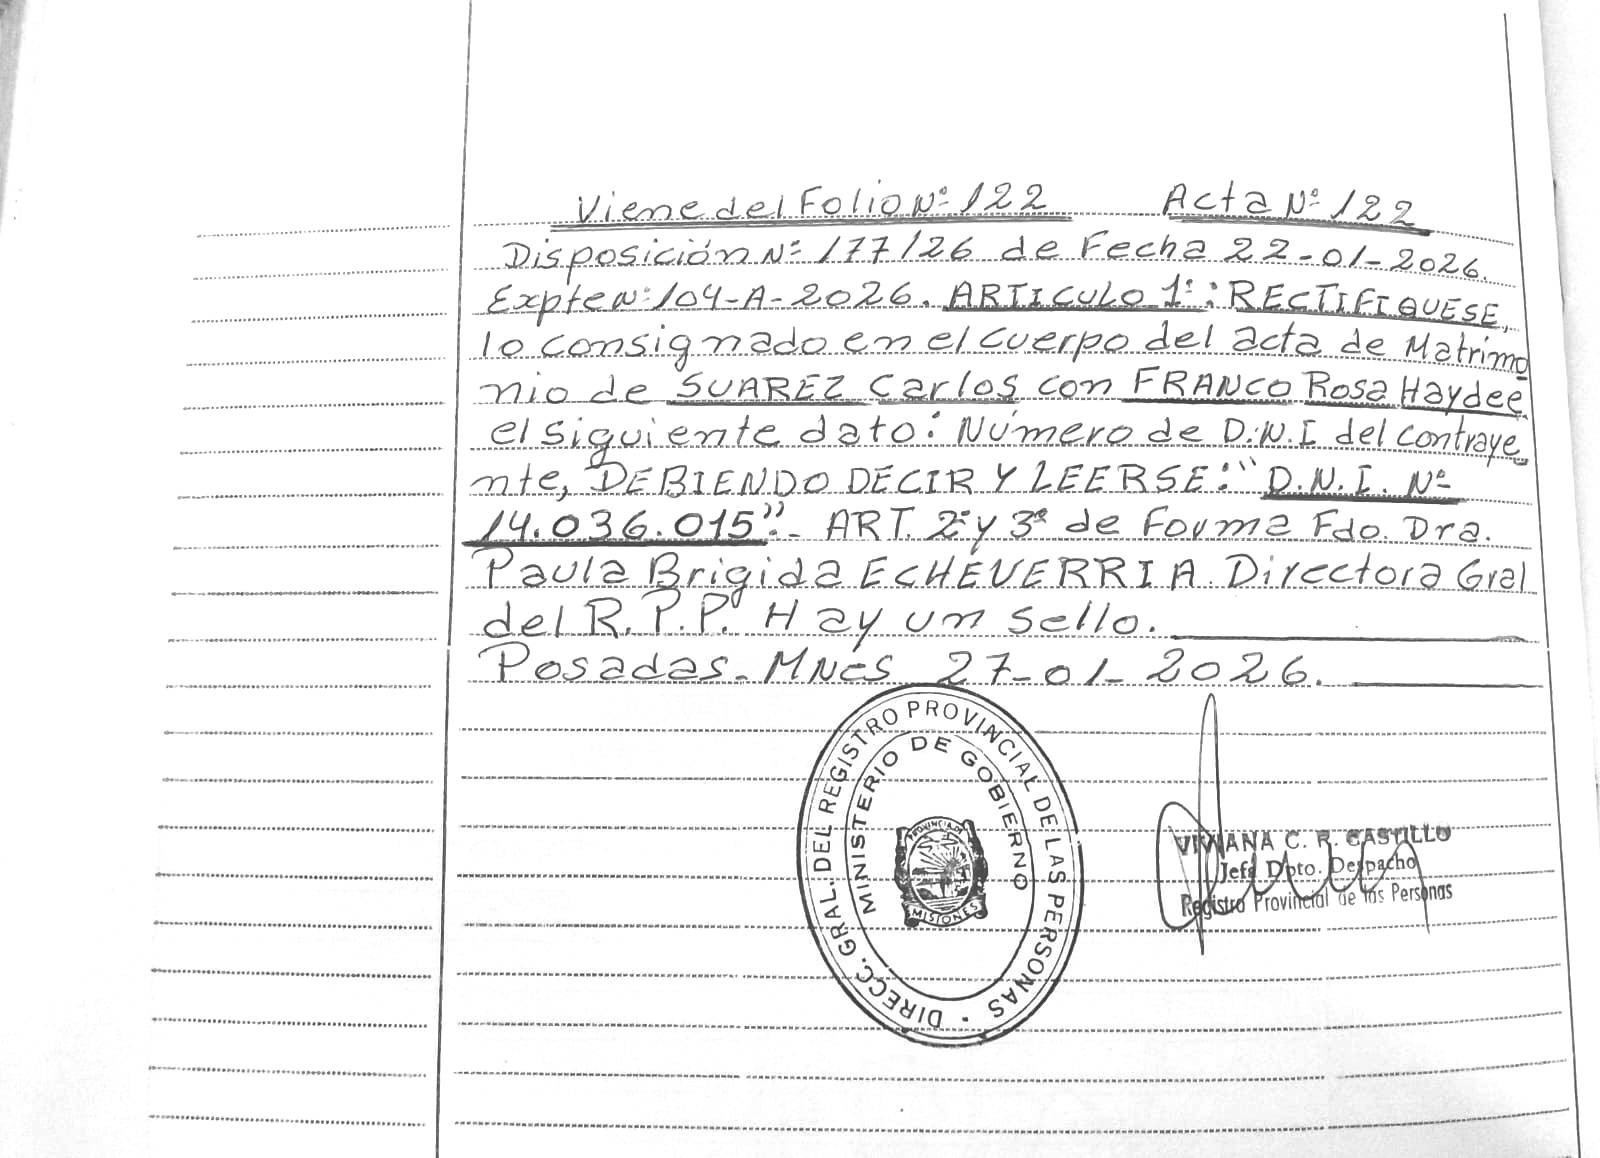 Viene del Folio Nº 122 Acta Nº 122
Disposición Nº 177/26 de Fecha 22-01-2026.
Expte Nº 104-A-2026. ARTICULO 1º: RECTIFIQUESE,
lo consignado en el cuerpo del acta de Matrimo
nio de SUAREZ Carlos con FRANCO Rosa Haydee
el siguiente dato: Número de D.N.I del contraye
nte, DEBIENDO DECIR Y LEERSE: "D.N.I. Nº
14.036.015".- ART. 2º y 3º de Forma Fdo. Dra.
Paula Brigida ECHEVERRIA Directora Gral
del R.P.P. Hay un sello.
Posadas. Mnes 27-01-2026.
DIRECC. GRAL. DEL REGISTRO PROVINCIAL DE LAS PERSONAS
MINISTERIO DE GOBIERNO
PROVINCIA DE
MISIONES
VIVIANA C. R. CASTILLO
Jefa Dpto. Despacho
Registro Provincial de las Personas